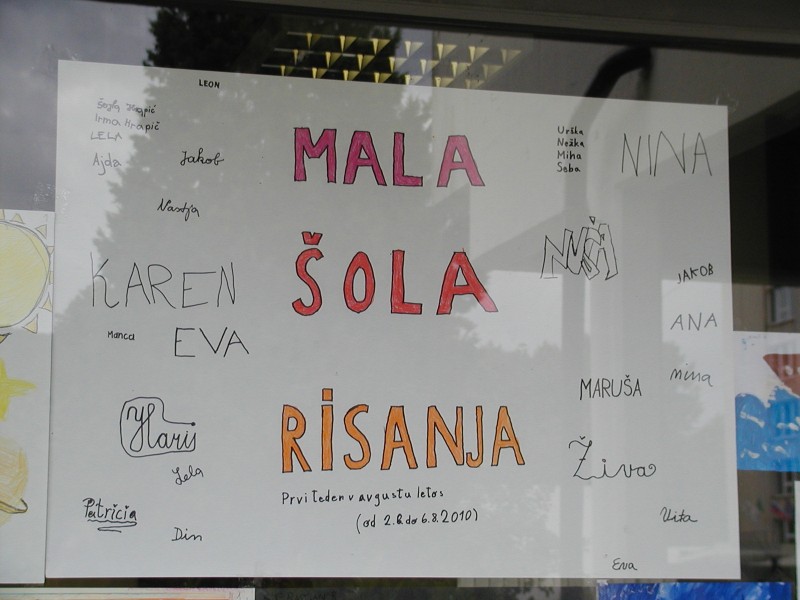 LEON
Irma Hrapić
LELA
Ajda
Jakob
Nastja
MALA
Urška
Nežka
Miha
Seba
NINA
NUŠA
ŠOLA
KAREN
JAKOB
ANA
Manca
EVA
nina
MARUŠA
Haris
RISANJA
Živa
Lela
Prvi teden v avgustu letos
(od 2.8. do 6.8.2010)
Patricia
Din
Vita
Eva